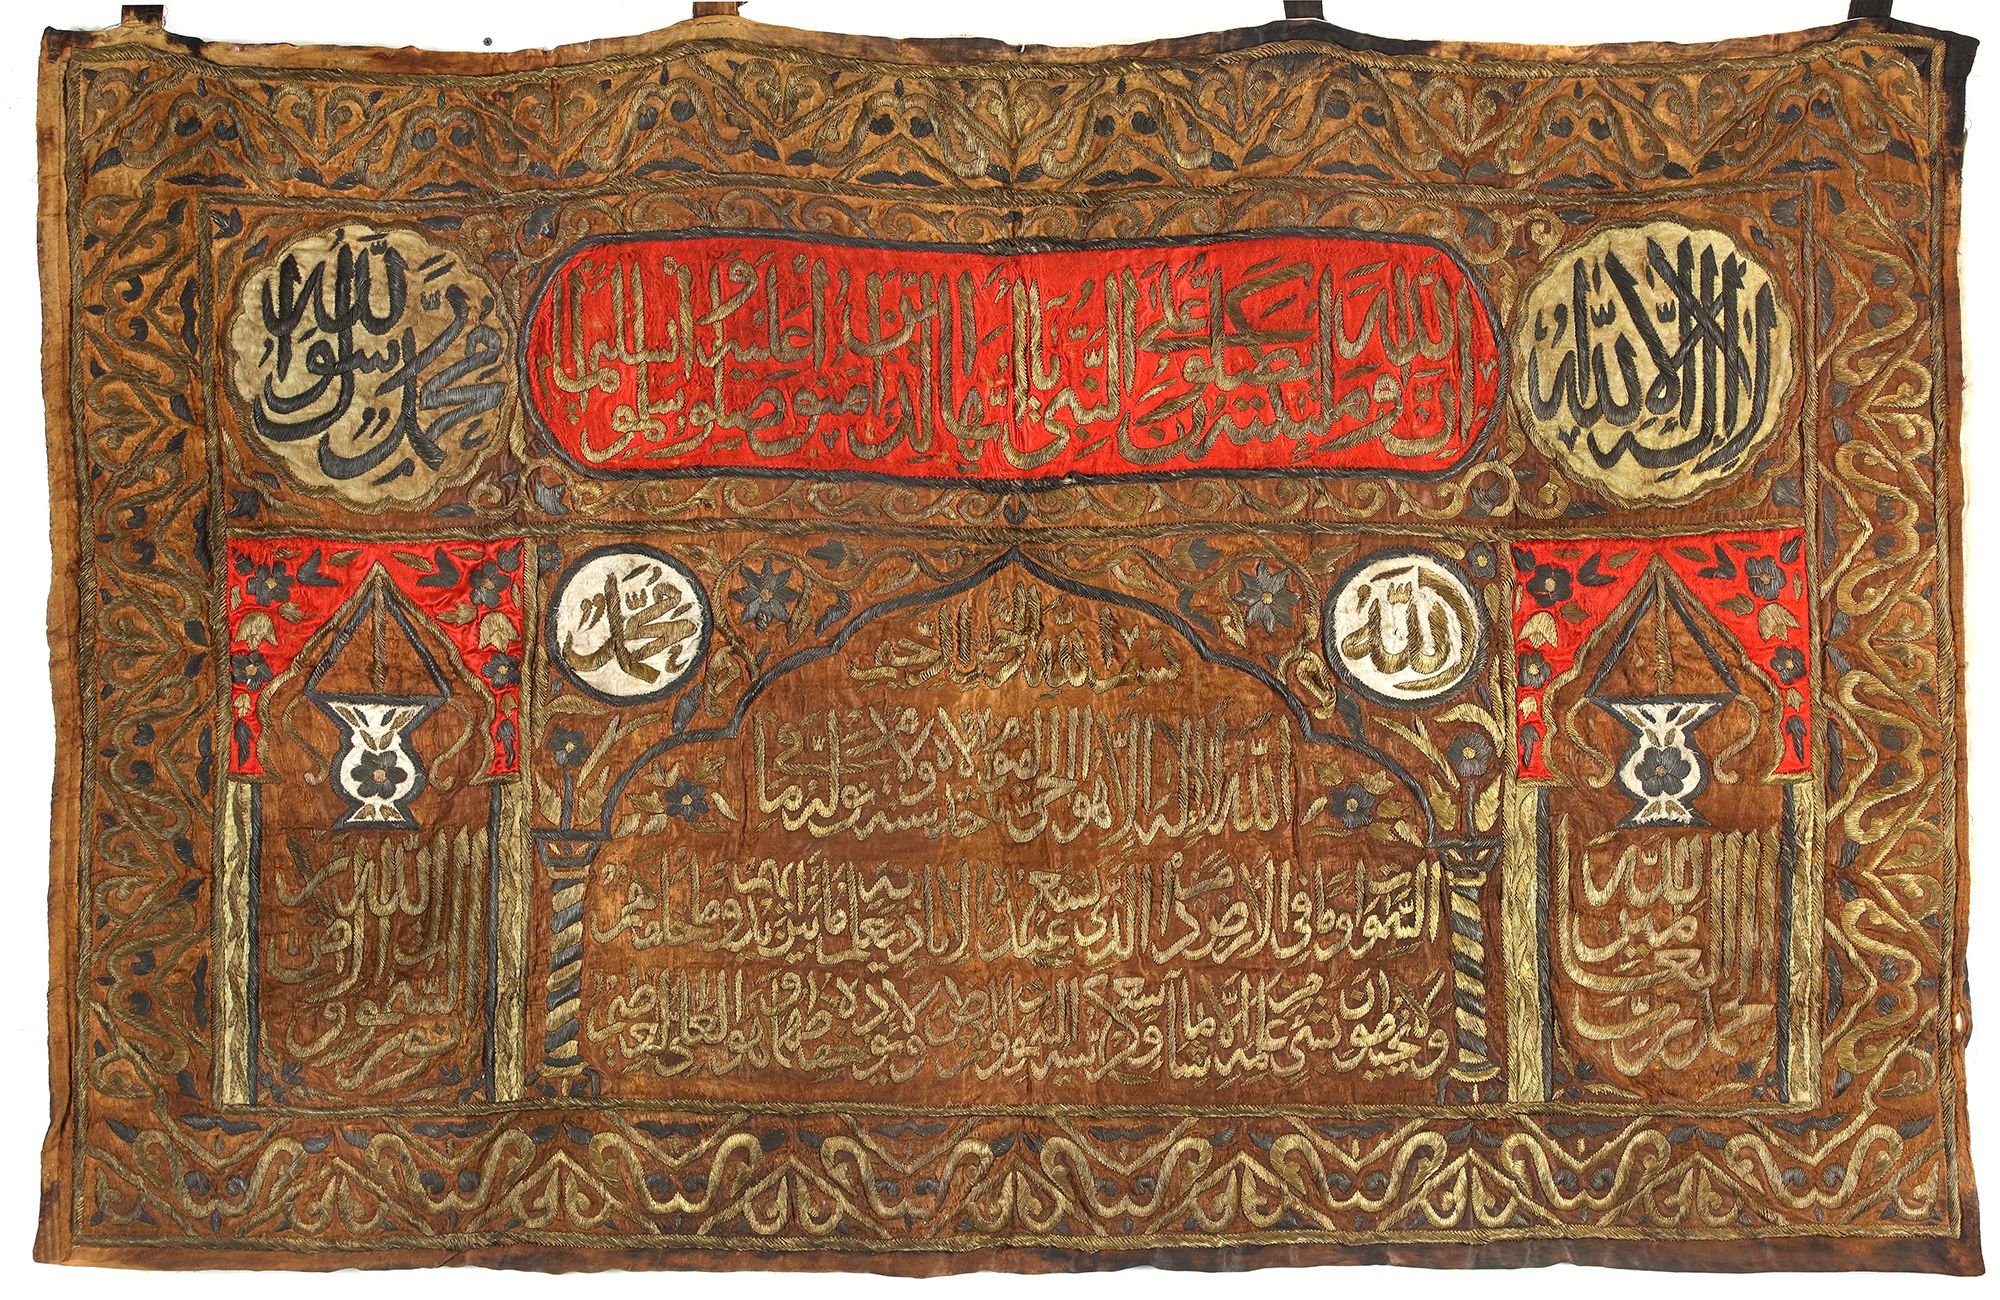 لا اله الا الله
ان الله وملئكته يصلون على النبي يا ايها الذين امنو صلو عليه وسلمو تسليما
محمد رسول الله
الله
محمد
بسم الله الرحمن الرحيم
الله لا اله الا هو الحي القيوم لا تاخذه سنة ولا نوم له ما في
السموات وما في الارض من ذا الذي يشفع عنده الا باذنه يعلم ما بين ايديهم وما خلفهم
ولا يحيطون بشئ من علمه الا بما شاء وسع كرسيه السموات والارض ولا يؤده حفظهما وهو العلي العظيم
الحمد لله رب العالمين
الله نور السموات والارض